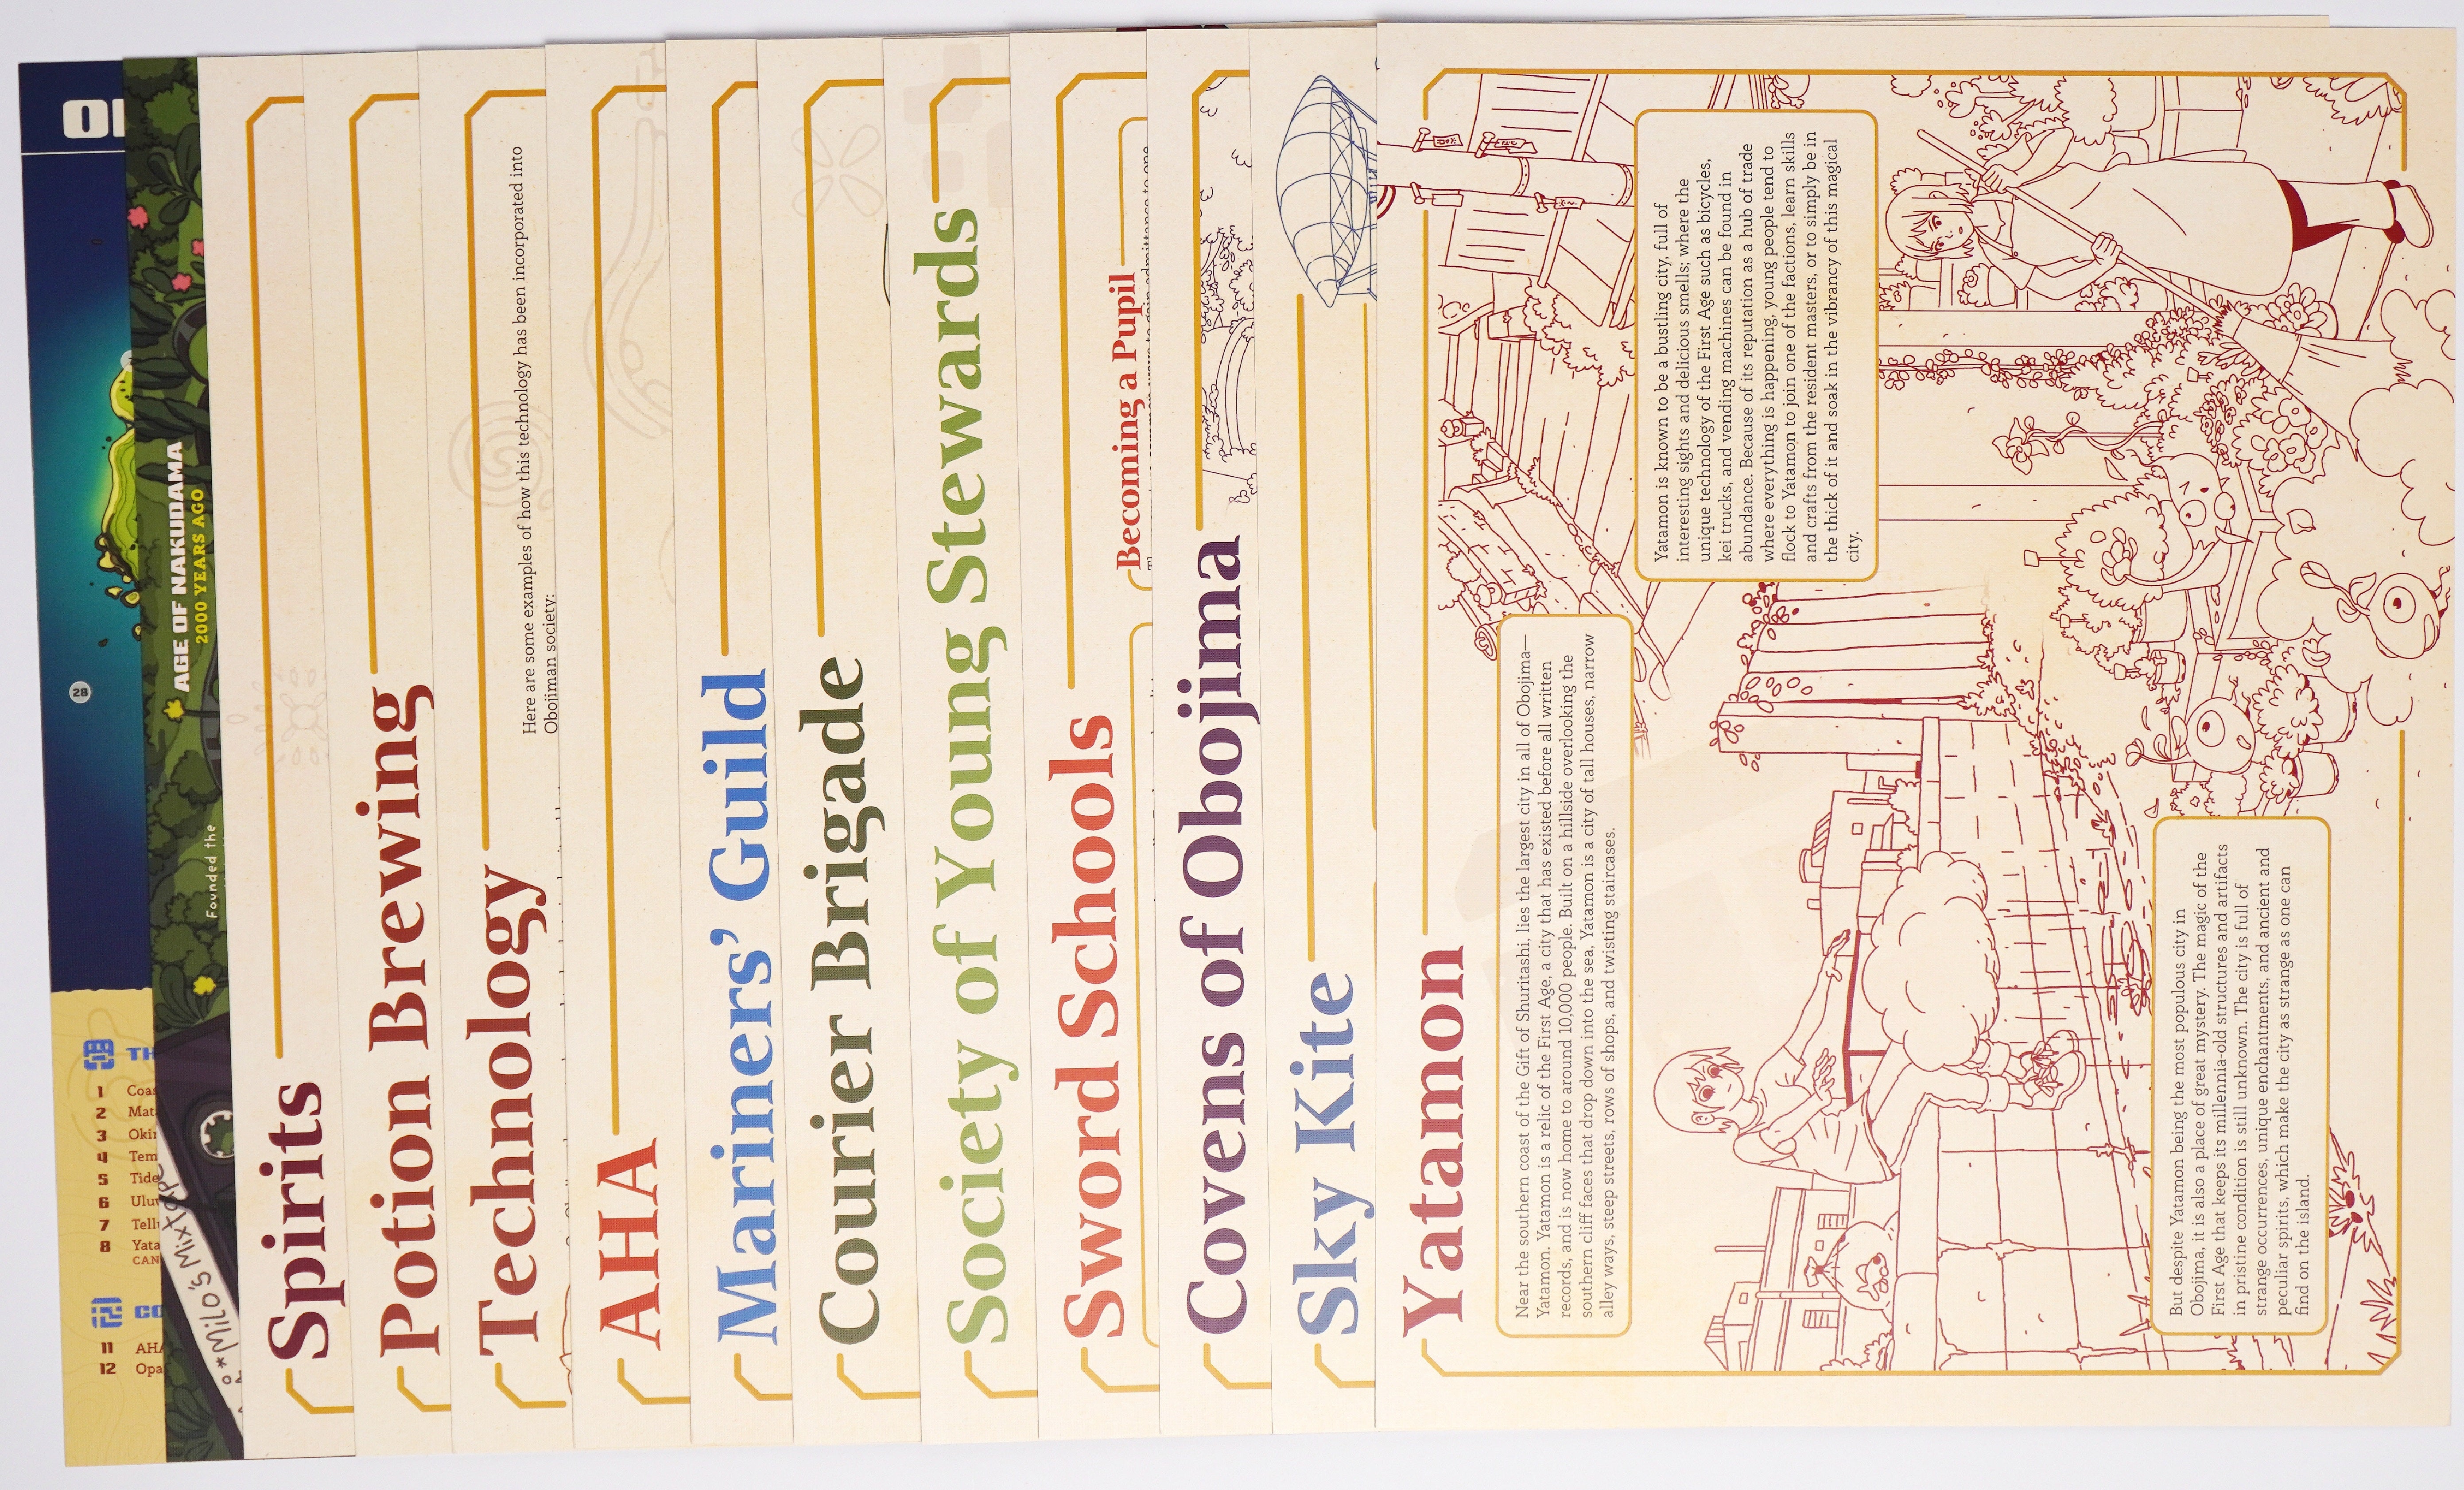 28
1
2
3
4
5
6
7
8
11
12
AHA
AGE OF NAKUDAMA
2000 YEARS AGO
Founded the
*Milo's Mixtape
Spirits
Potion Brewing
Technology
Here are some examples of how this technology has been incorporated into
Obojiman society:
AHA
Mariners' Guild
Courier Brigade
Society of Young Stewards
Sword Schools
Becoming a Pupil
Covens of Obojima
Sky Kite
Yatamon
Near the southern coast of the Gift of Shuritashi, lies the largest city in all of Obojima—
Yatamon. Yatamon is a relic of the First Age, a city that has existed before all written
records, and is now home to around 10,000 people. Built on a hillside overlooking the
southern cliff faces that drop down into the sea, Yatamon is a city of tall houses, narrow
alley ways, steep streets, rows of shops, and twisting staircases.
Yatamon is known to be a bustling city, full of
interesting sights and delicious smells; where the
unique technology of the First Age such as bicycles,
kei trucks, and vending machines can be found in
abundance. Because of its reputation as a hub of trade
where everything is happening, young people tend to
flock to Yatamon to join one of the factions, learn skills
and crafts from the resident masters, or to simply be in
the thick of it and soak in the vibrancy of this magical
city.
But despite Yatamon being the most populous city in
Obojima, it is also a place of great mystery. The magic of the
First Age that keeps its millennia-old structures and artifacts
in pristine condition is still unknown. The city is full of
strange occurrences, unique enchantments, and ancient and
peculiar spirits, which make the city as strange as one can
find on the island.